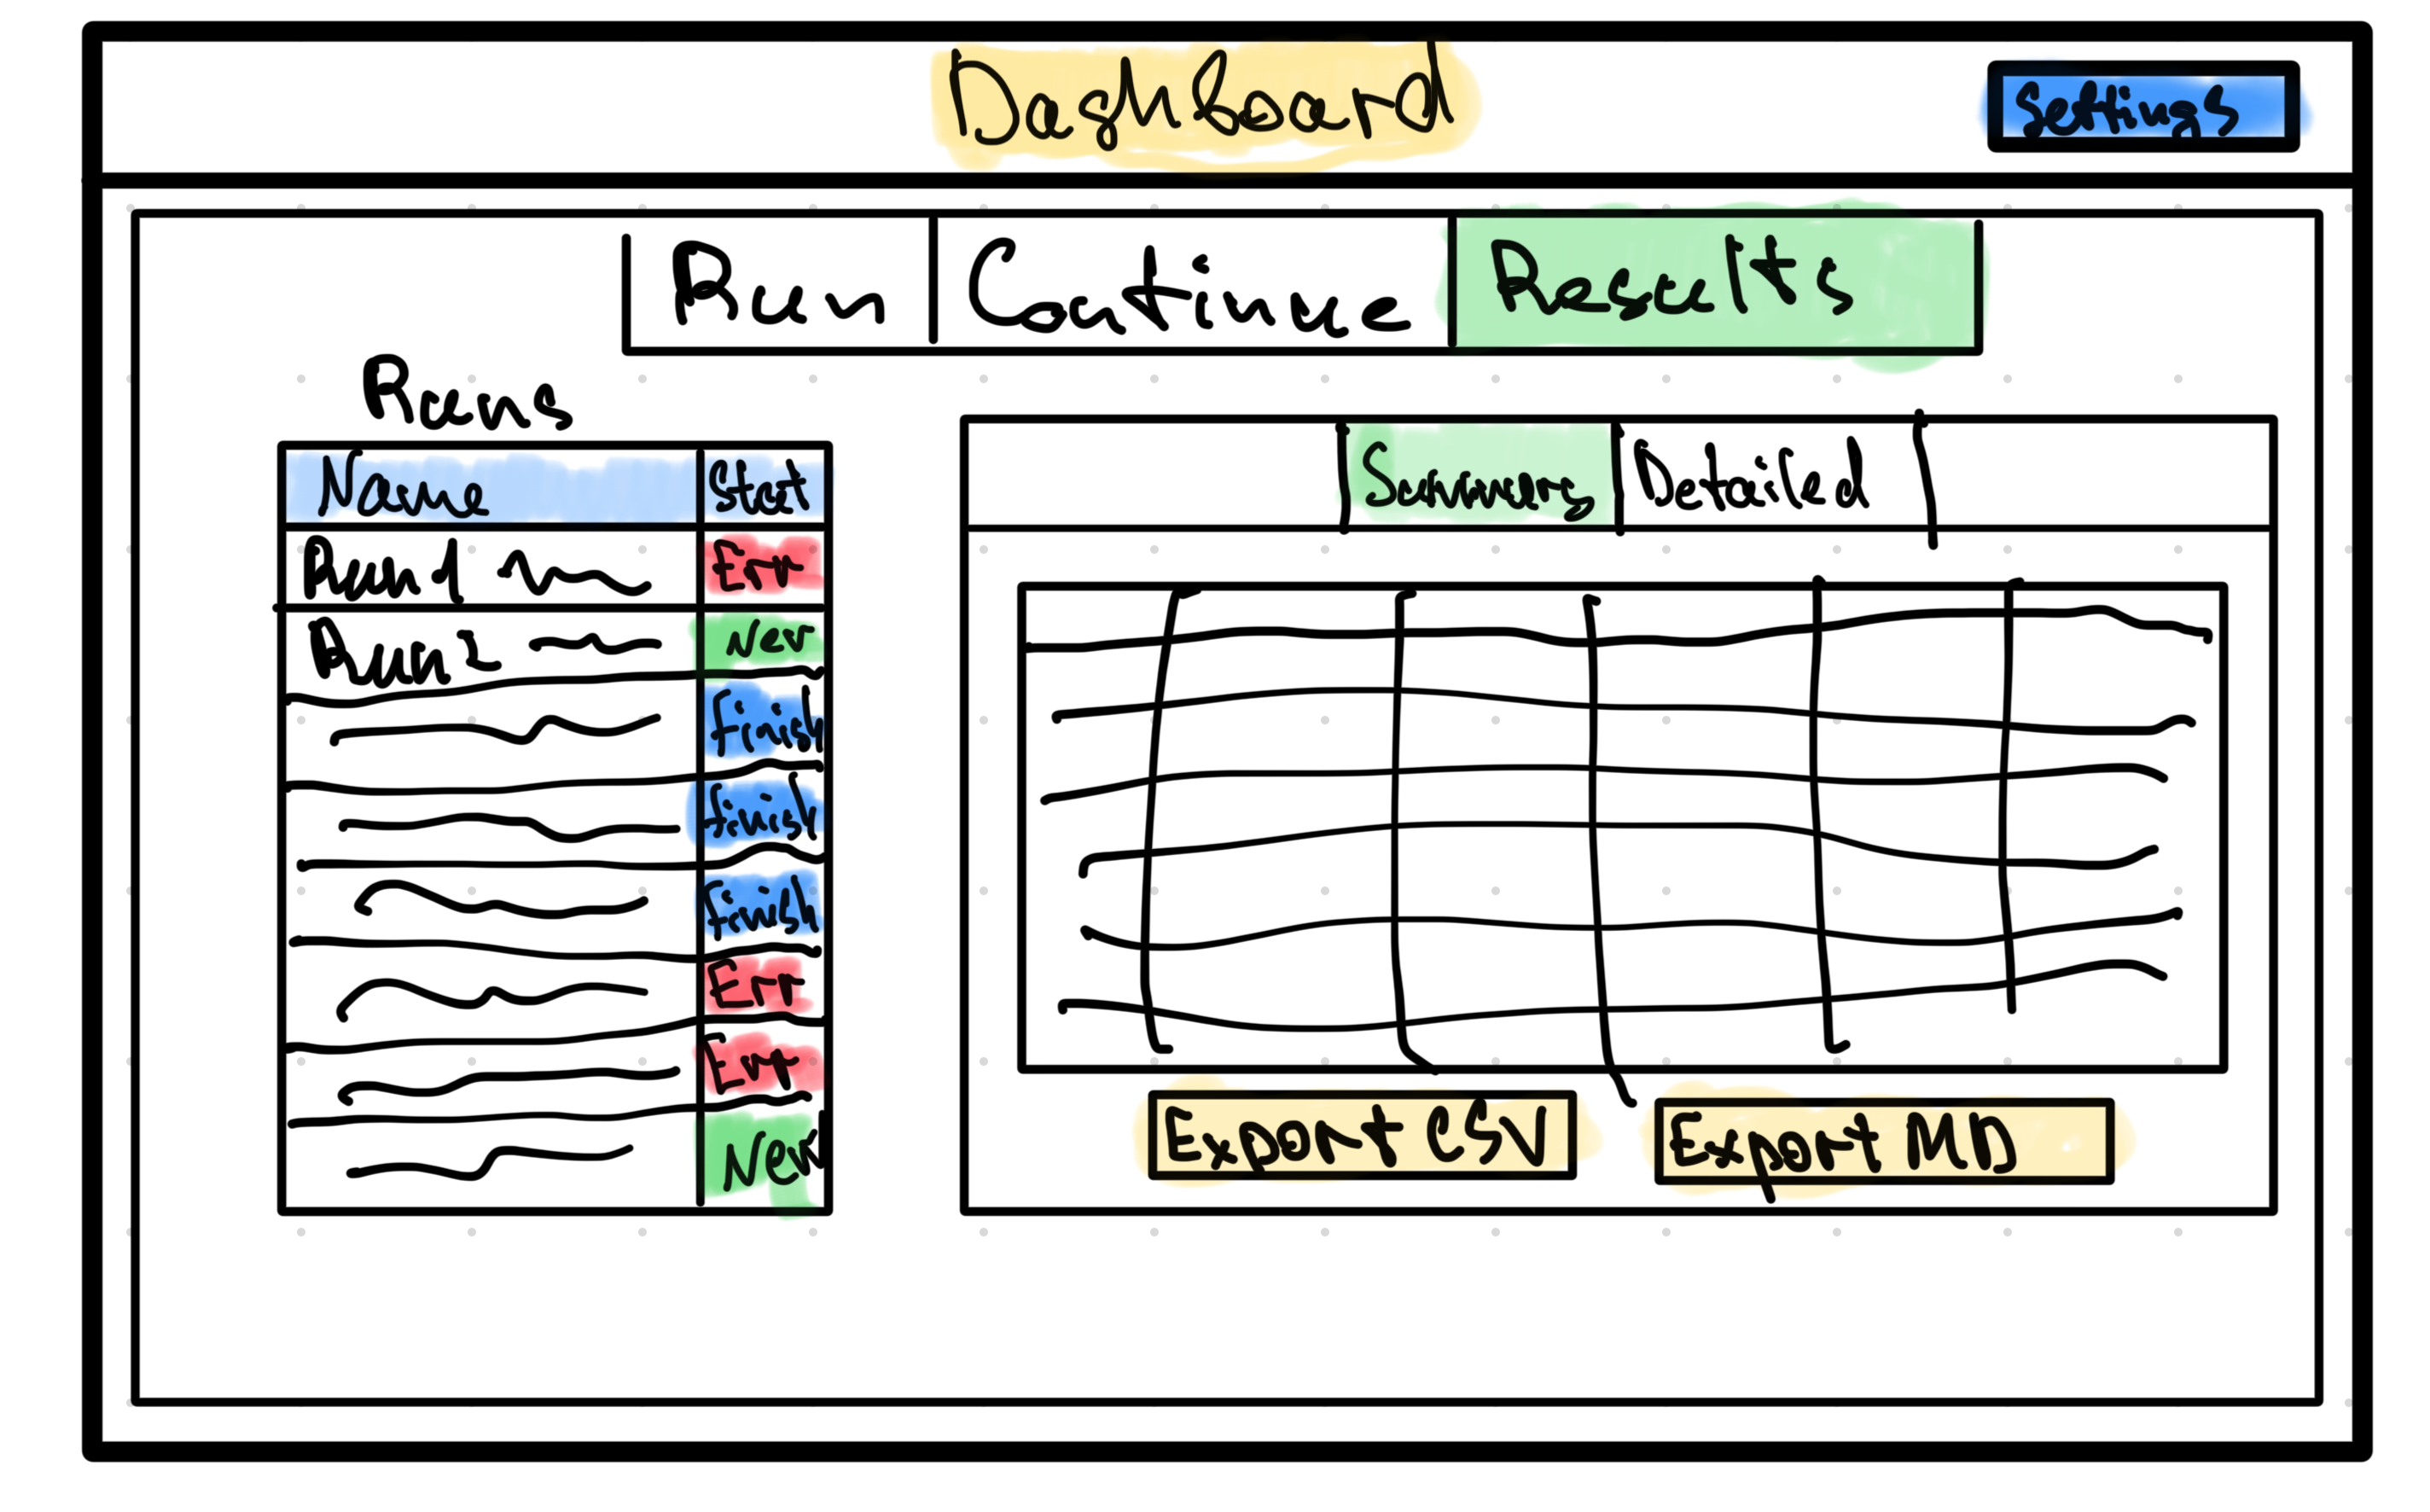 Dashboard
Settings
Run Continue Results
Runs
Name Stat
Run 1 Err
Run 2 New
finish
finish
finish
Err
Err
New
Summary Detailed
Export CSV
Export MD